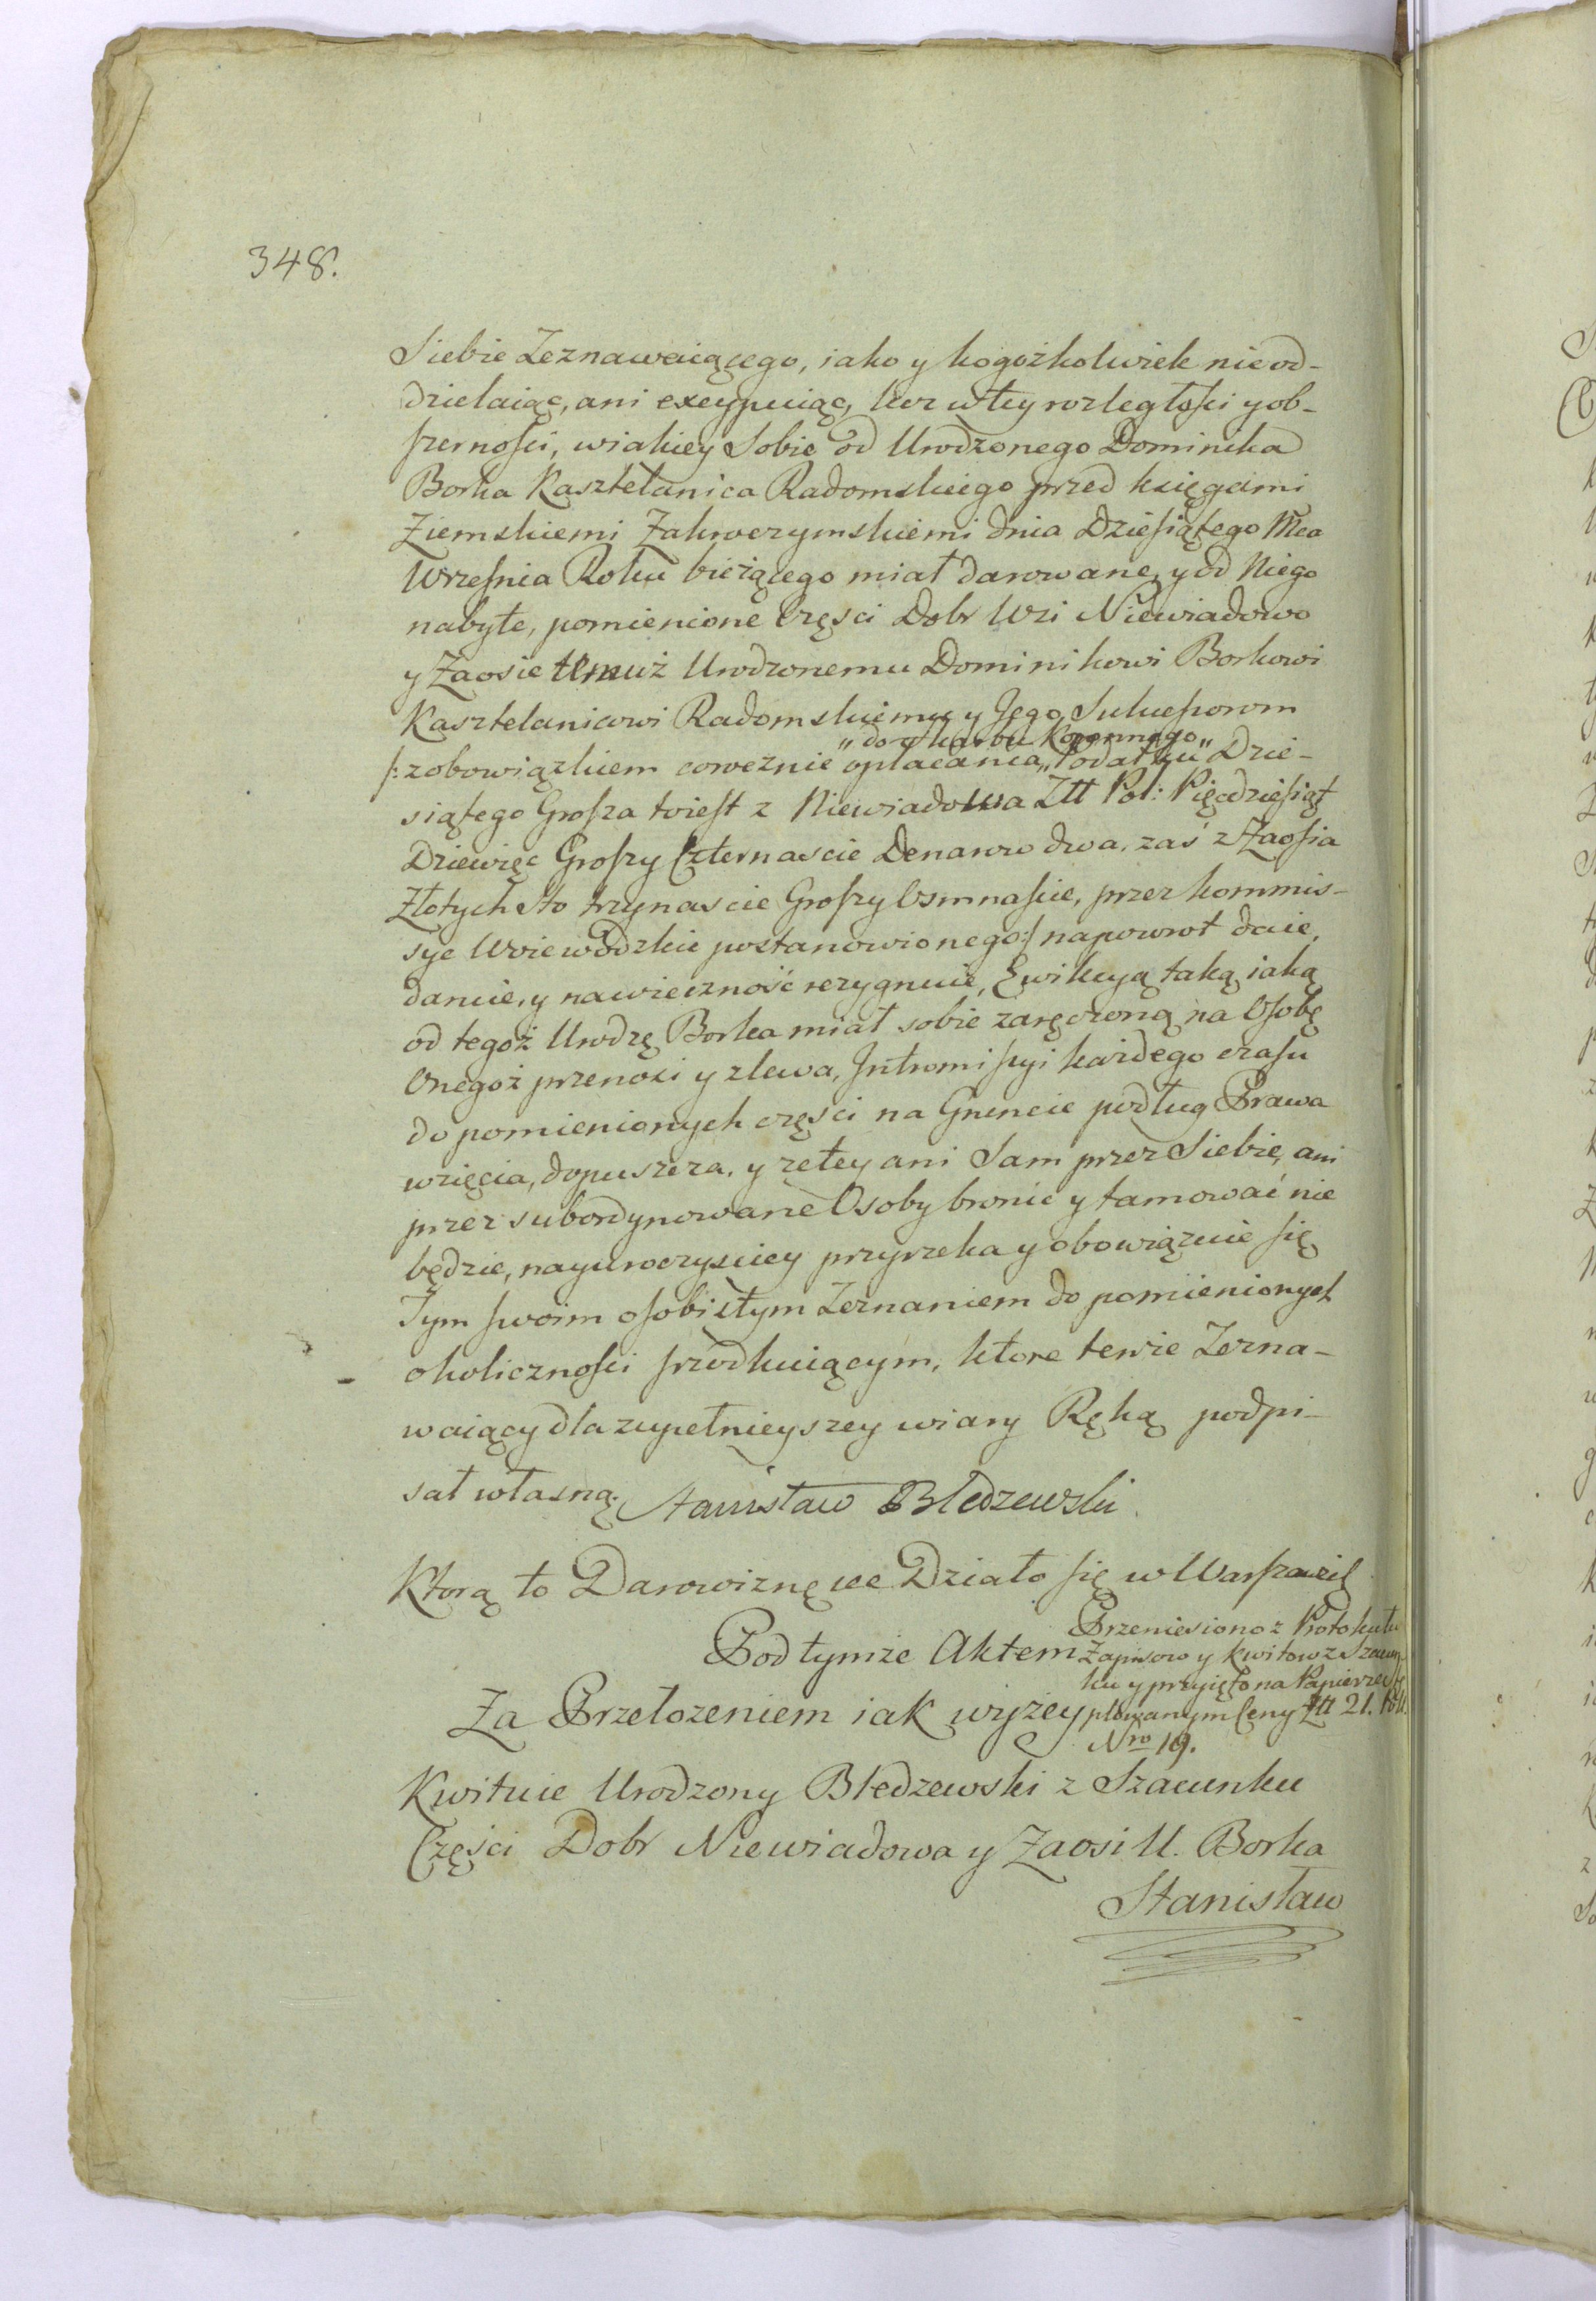 348.
Siebie Zeznawaiącego, iako y kogożkolwiek nie od-
dzielaiąc, ani excypuiąc, lecz w tey rozległości y ob-
szerności, w iakiey Sobie od Urodzonego Dominika
Borka Kasztelanica Radomskiego przed księgami
Ziemskiemi Zakroczymskiemi dnia Dziesiątego Mca
Września Roku bieżącego miał darowane, y od Niego
nabyte, pomienione Części Dobr Wsi Niewiadowo
y Zaosie temuż Urodzonemu Dominikowi Borkowi
Kasztelanicowi Radomskiemu y Jego Sukcessorom
„do Skarbu Koronnego„
/: z obowiązkiem corocznie opłacania „Podatku„ Dzie-
siątego Grosza to iest z Niewiadowa Złł Pol: Pięćdziesiąt
Dziewięć Groszy Czternascie Denarow dwa, zaś z Zaosia
Złotych sto trzynascie Groszy Osmnaście, przez kommis-
sye Woiewodzkie postanowionego :/ napowrot daie,
daruie, y nawieczność rezygnuie, Ewikcyą taką iaką
od tegoż Urodzę Borka miał sobie zaręczoną na Osobę
Onegoż przenosi y zlewa, Intromissyi każdego czasu
do pomienionych części na Gruncie podług Prawa
wzięcia, dopuszcza, y zetey ani Sam przez Siebie, ani
przez subordynowane Osoby bronić y tamować nie
będzie, nayuroczysciey przyrzeka y obowiązuie się
Tym swoim osobistym Zeznaniem do pomienionych
okoliczności skutkuiącym, ktore tenże Zezna-
waiący dla zupełnieyszey wiary Ręką podpi-
sał własną. Stanisław Bledzewski.
Ktorą to Darowiznę ece Działo się w Warszawie
Pod tymże Aktem
Przeniesiono z Protokułu
Zapisow y kwitow z Szacun-
ku y przyięto na Papierze
plowanym Ceny Złł 21.
Nro 19.
Za Przełozeniem iak wyżey
Kwituie Urodzony Bledzewski z Szacunku
Części Dobr Niewiadowa y Zaosi U. Borka
Stanisław